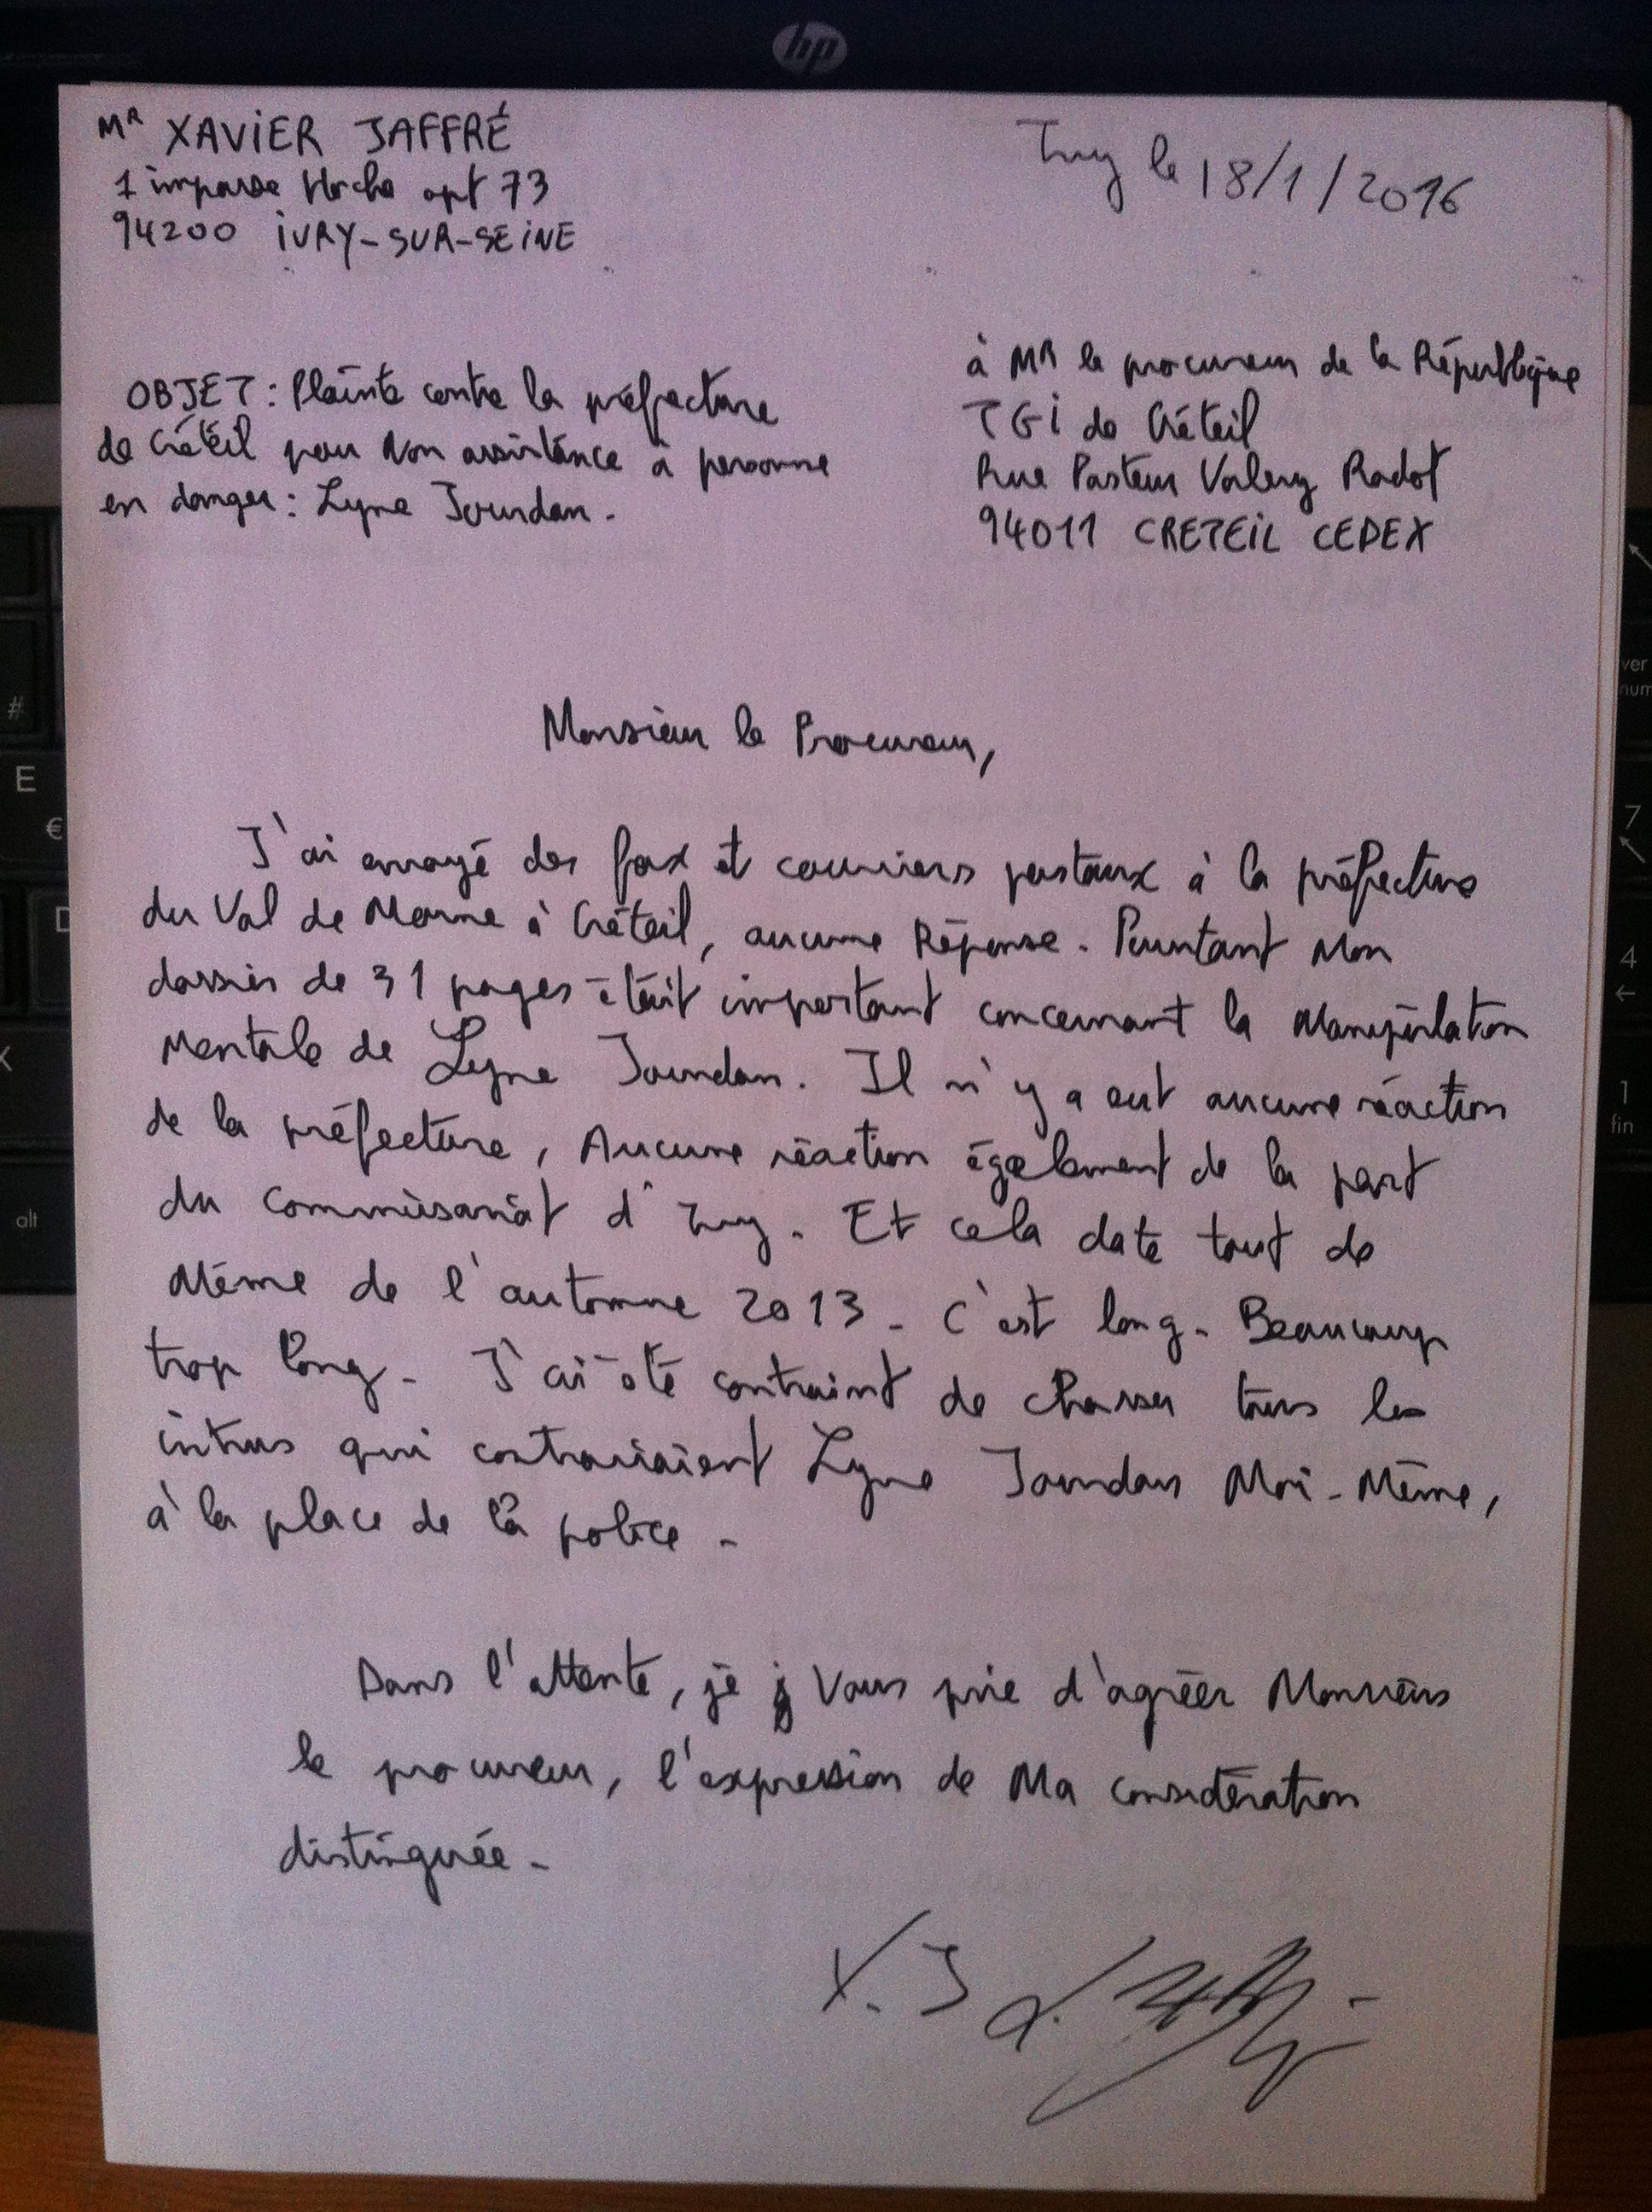 hp
MR XAVIER JAFFRÉ
1 impasse Hoche apt 73
94200 IVRY-SUR-SEINE
Ivry le 18/1/2016
OBJET: Plainte contre la préfecture
de Créteil pour Non assistance à personne
en danger: Lyne Jourdan.
à MR le procureur de la République
TGI de Créteil
Rue Pasteur Valery Radot
94011 CRETEIL CEDEX
Monsieur le Procureur,
J'ai envoyé des fax et courriers postaux à la préfecture
du Val de Marne à Créteil, aucune Réponse. Pourtant Mon
dossier de 31 pages était important concernant la Manipulation
Mentale de Lyne Jourdan. Il n'y a eut aucune réaction
de la préfecture, Aucune réaction également de la part
du commissariat d'Ivry. Et cela date tout de
Même de l'automne 2013. C'est long. Beaucoup
trop long. J'ai été contraint de chasser tous les
intrus qui contrariaient Lyne Jourdan Moi-Même,
à la place de la police.
Dans l'attente, je Vous prie d'agréer Monsieur
le procureur, l'expression de Ma considération
distinguée.
X. J
#
E
€
D
X
alt
ver
num
7
4
1
fin